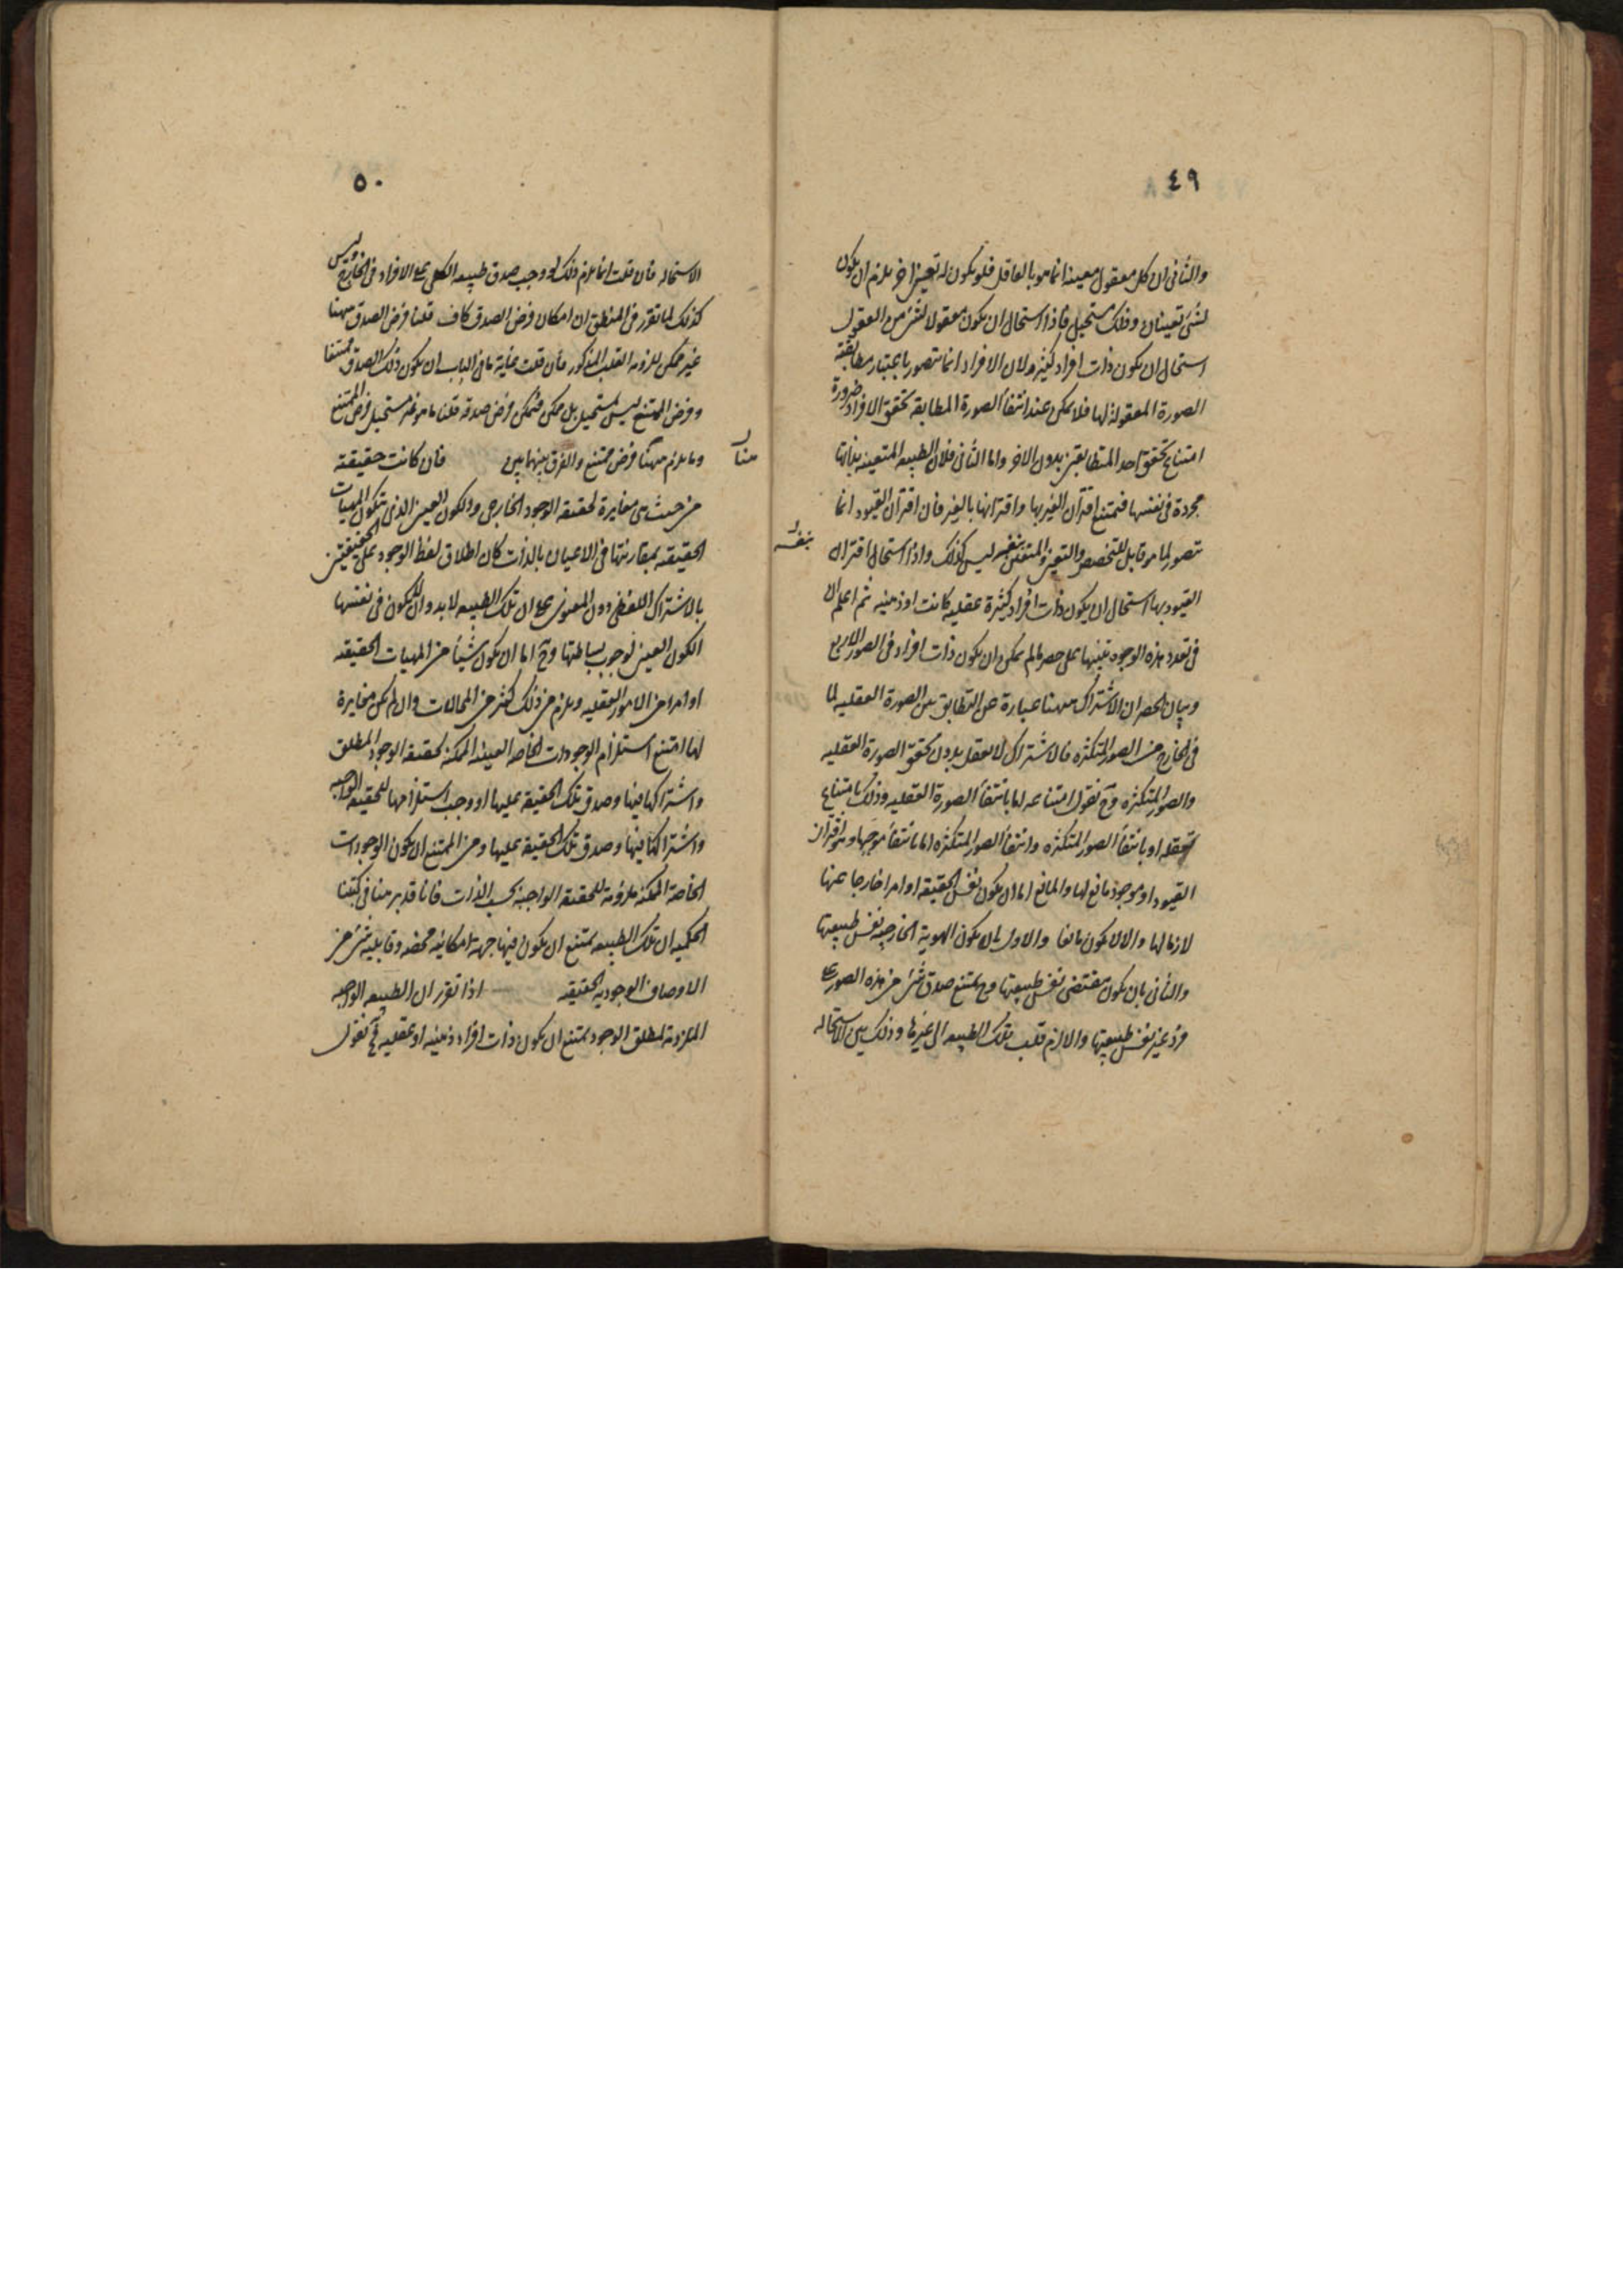 ٤٩
والثانی ان کل معقول معینه انما هو بالعاقل فلو یکون له تعین اخر یلزم ان یکون
لشئ تعینان وذلک مستحیل فاذا استحال ان یکون معقولا لشئ من العقول
استحال ان یکون ذات افراد کثیره ولان الافراد انما تتصور باعتبار مطابقته
الصورة المعقولة لها فلا یمکن عند انتفاء الصورة المطابقه تحقق الافراد ضرورة
امتناع تحقق احد المتطابقین بدون الاخر واما الثانی فلان الطبیعه المتعینه بذاتها
مجردة فی نفسها فیمتنع اقتران الغیر بها واقترانها بالغیر فان اقتران القیود انما
تتصور لما هو قابل للتخصص والتعین والمتعین بنفسه لیس کذلک واذا استحال اقتران
بنفسه
القیود بها استحال ان یکون ذات افراد کثیرة عقلیه کانت او ذهنیه ثم اعلم ان
فی تعدد هذه الوجوه تنبیها علی حصر مالم یمکن ان یکون ذات افراد فی الصور الاربع
وبیان الحصر ان الاشتراک ههنا عبارة عن التطابق بین الصورة العقلیه لما
فی الخارج من الصور المتکثره فالاشتراک لا یعقل بدون تحقق الصورة العقلیه
والصور المتکثره وح نقول امتناعه اما بانتفاء الصورة العقلیه وذلک بامتناع
تعقله او بانتفاء الصور المتکثره وانتفاء الصور المتکثره اما بانتفاء موجبها وهو اقتران
القیود او موجود مانع لها والمانع اما ان یکون نفس الحقیقه او امرا خارجا عنها
لازما لها والا لا یکون مانعا والاول بان یکون الهویة الخارجیه نفس طبیعتها
والثانی بان یکون مقتضی نفس طبیعتها وح یمتنع صدق شئ من هذه الصور علی
فرد غیر نفس طبیعتها والا لزم قلب تلک الطبیعه الی غیرها وذلک بین الاستحاله
٥٠
الاستحاله فان قلت انما یلزم ذلک لو وجب صدق طبیعه الکلی علی الافراد فی الخارج ولیس
کذلک لما تقرر فی المنطق ان امکان فرض الصدق کاف قلنا فرض الصدق ههنا
غیر ممکن للزومه القلب المذکور فان قلت غایة ما فی الباب ان یکون ذلک الصدق ممتنعا
وفرض الممتنع لیس بمستحیل بل ممکن فیمکن فرض صدقه قلنا ما هو غیر مستحیل فرض الممتنع
وما یلزم ههنا فرض ممتنع والفرق بینهما بین فان کانت حقیقته
من حیث هی مغایرة لحقیقه الوجود الخارجی والکون العینی الذی تتکون المهیات
الحقیقه بمقارنتها فی الاعیان بالذات کان اطلاق لفظ الوجود علی الحقیقتین
بالاشتراک اللفظی دون المعنوی علی ان تلک الطبیعه لابد وان لا یکون فی نفسها
الکون العینی لوجوب بساطتها وح اما ان یکون شیئا من المهیات الحقیقه
او امرا من الامور العقلیه ویلزم من ذلک کثیر من المحالات وان لم یکن مغایرة
لها امتنع استلزام الوجودات الخاصه العینیه الممکنه لحقیقه الوجود المطلق
واشتراکها فیها وصدق تلک الحقیقه علیها او وجب استلزامها للحقیقه الواجبه
واشتراکها فیها وصدق تلک الحقیقه علیها ومن الممتنع ان یکون الوجودات
الخاصه الممکنه ملزومة للحقیقه الواجبه بحسب الذات فانا قد برهنا فی کتبنا
الحکمیه ان تلک الطبیعه یمتنع ان یکون فیها جهة امکانیه محضه وقابلیه شئ من
الاوصاف الوجودیه الحقیقه اذا تقرر ان الطبیعه الواجبه
الملزومة لمطلق الوجود یمتنع ان یکون ذات افراد ذهنیه او عقلیه فح نقول